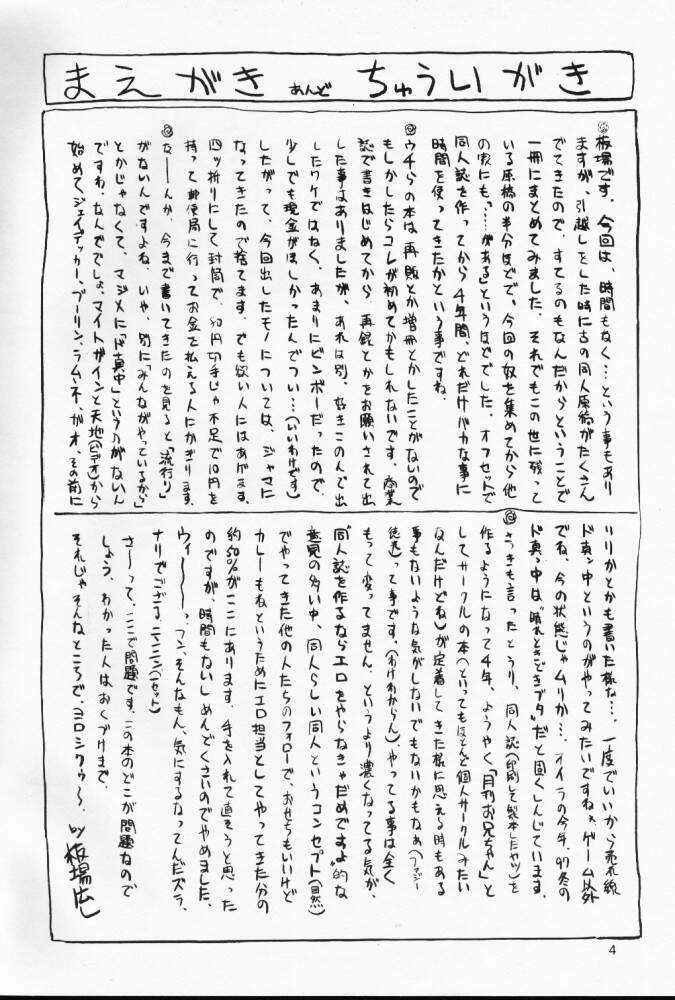 まえがき あんど ちゅういがき
◎板場です。今回は、時間もなく…という事もあり
ますが、引越しをした時に古の同人原稿がたくさん
でてきたので、すてるのもなんだからということで
一冊にまとめてみました。それでもこの世に残って
いる原稿の半分ほどで。今回の奴を集めてから他
の家にも、「……がある」というほどでした。オフセットで
同人誌を作ってから4年間、どれだけバカな事に
時間を使ってきたかという事ですね。
◎ウチらの本は、再販とか増冊とかしたことがないので
もしかしたらコレが初めてかもしれないです。商業
誌で書きはじめてから、再録とかをお願いされて出
した事はありましたが、あれは別。好きこのんで出
したワケではなく、あまりにビンボーだったので、
少しでも現金がほしかったんでつい…(いいわけです)
したがって、今回出したモノについては、ジャマに
なってきたので捨てます。でも欲い人にはあげます。
四ッ折りにして封筒で、80円切手じゃ不足で10円を
持って郵便局に行ってお金を払える人にかぎります。
◎なーーんか、今まで書いてきたのを見ると「流行り」
がないんですよね。いや、別に「みんながやっているから」
とかじゃなくて、マジメに「ド真中」というのがないん
ですわ。なんででしょ、マイトガインと天地(ビデオ)から
始めて、ジェイデッカー、プーリン、ラムネ、ガオ、その前に
いりかとかも書いた様な…。一度でいいから売れ線
ド真ン中というのがやってみたいですね。ゲーム以外
でね、今の状態じゃムリか…。オイラの今年、97冬の
ド真っ中は"晴れときどきブタ"だと固くしんじています。
◎さっきも言ったとうり、同人誌(印刷して製本したヤツ)を
作るようになって4年、ようやく「月刊お兄ちゃん」と
してサークルの本(といってもほとんど個人サークルみたい
なんだけどね)が定着してきた様に思える時もある
事もないような気がしないでもないかもなぁ(ファジー
徒遠)って事です。(わけわからん)、やってる事は全く
もって変ってません。というより濃くなってる気が、
"同人誌を作るならエロをやらなきゃだめですよ"的な
意見の多い中、同人らしい同人というコンセプト(自然)
でやってきた他の人たちのフォローで、おせちもいいけど
カレーもねというためにエロ担当としてやってきた分の
約50%がここにあります。手を入れて直そうと思った
のですが、時間もないしめんどくさいのでやめました。
ウィーーーっ、フン、そんなもん、気にするなってんだズラ、
ナリでござる、ニンニン(1セット)
さーって、ここで問題です。この本のどこが問題なので
しょう、わかった人はおくづけまで。
それじゃそんなところで、ヨロシクゥ〜。
by 板場広し
4